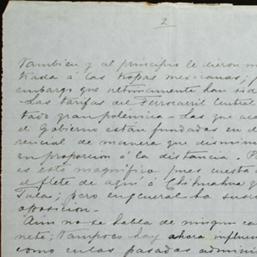 2
Tambien y al principio le dieron
trada á las tropas mexicanas;
embargo que ultimamente han sido
las tarifas del Ferrocarril Central
tado gran polemica - las que
el Gobierno están fundadas en
rencial de manera que dismin
en proporcion á la distancia.
es esto magnífico (pues cuesta
el flete de aquí á Chihuahua
Tula, pero en general ha susc
oposicion.
Aun no se habla de ningun ca
nete; tampoco hay ahora influen
como en las pasadas adminis